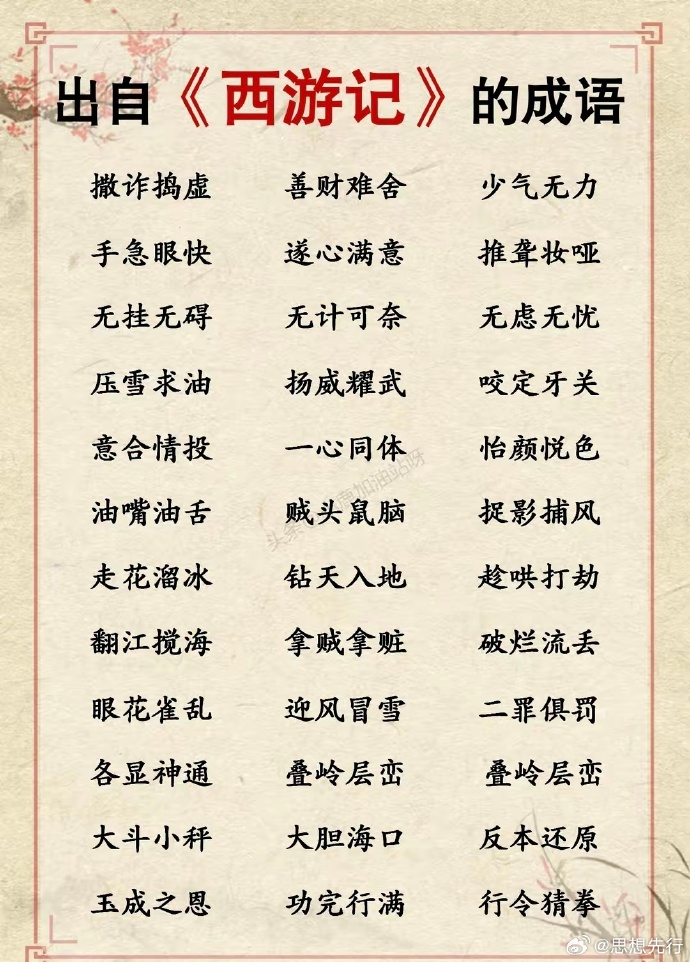 出自《西游记》的成语
撒诈捣虚 善财难舍 少气无力
手急眼快 遂心满意 推聋妆哑
无挂无碍 无计可奈 无虑无忧
压雪求油 扬威耀武 咬定牙关
意合情投 一心同体 怡颜悦色
油嘴油舌 贼头鼠脑 捉影捕风
走花溜冰 钻天入地 趁哄打劫
翻江搅海 拿贼拿赃 破烂流丢
眼花雀乱 迎风冒雪 二罪俱罚
各显神通 叠岭层峦 叠岭层峦
大斗小秤 大胆海口 反本还原
玉成之恩 功完行满 行令猜拳
@思想先行